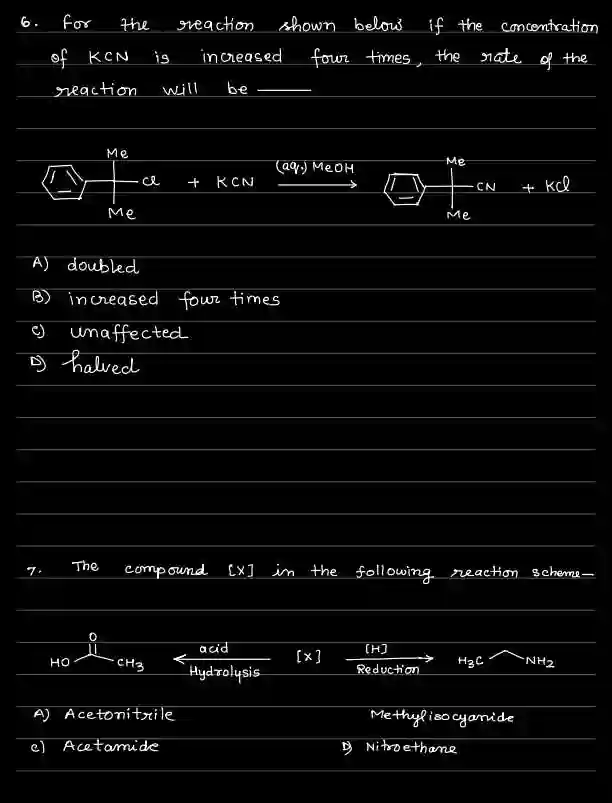 6. For the reaction shown below if the concentration
of KCN is increased four times, the rate of the
reaction will be ———
Me
Cl + KCN (aq.) MeOH
Me
Me
CN + KCl
Me
A) doubled
B) increased four times
C) unaffected
D) halved
7. The compound [X] in the following reaction scheme—
O
HO CH3
acid
Hydrolysis
[X]
[H]
Reduction
H3C NH2
A) Acetonitrile Methylisocyanide
C) Acetamide D) Nitroethane